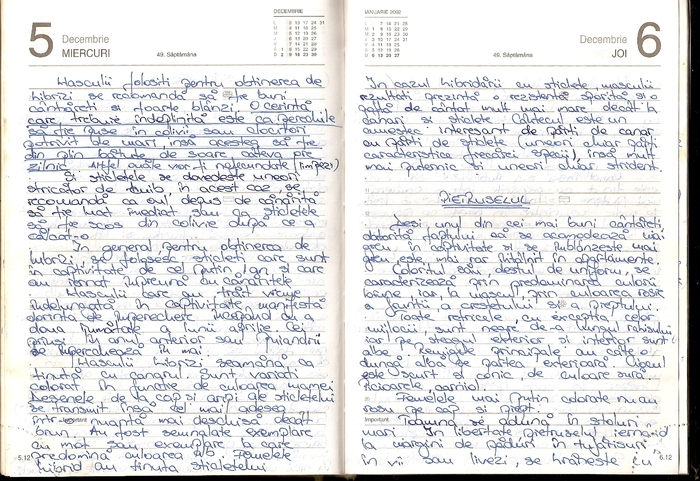 5
Decembrie
MIERCURI
49. Săptămîna
DECEMBRIE
Masculii folosiți pentru obținerea de
hibrizi se recomandă să fie buni
cântăreți și foarte blânzi. O cerință
care trebuie îndeplinită este ca perechile
să fie puse în colivii sau
potrivit de mari, însă acestea să fie
din plin bătute de soare câteva ore
zilnic. Altfel ouăle vor fi nefecundate (limpezi)
Și sticleții se dovedește uneori
stricător de cuib, în acest caz se
recomandă ca oul depus de canariță
să fie luat imediat sau ca sticletele
să fie scos din colivie după ce a
călcat-o.
În general pentru obținerea de
hibrizi, se folosesc sticleți care sunt
în captivitate de cel puțin 1 an și care
au iernat împreună cu canarițele
Masculii care au trăit vreme
îndelungată în captivitate, manifestă
dorința de împerechere începând cu a
doua jumătate a lunii aprilie. Cei
prinși în anul anterior sau puiandrii
se împerechează în mai.
Masculii hibrizi seamănă ca
ținută cu canarul. Sunt variați
colorat în funcție de culoarea mamei
Desenele de la cap și aripi ale sticletelui
se transmit însă cel mai adesea
într-o nuanță mai deschisă decât
brun. Au fost semnalate exemplare
cu mot sau exemplare la care
predomină culoarea alb. Femelele
hibrid au ținuta sticletelui
Important
5.12
IANUARIE 2002
49. Săptămîna
Decembrie
JOI
6
În cazul hibridării cu sticlete, masculii
rezultați prezintă o rezistență sporită și o
gamă de cântat mult mai mare decât la
canari și sticlete. Cântecul este un
amestec interesant de părți de canar
cu părți de sticlete (uneori chiar părți
caracteristice fiecărei specii), însă mult
mai puternic și uneori chiar strident.
PIETRUȘELUL
Deși unul din cei mai buni cântăreți,
datorită faptului că se acomodează mai
greu în captivitate și se îmblânzește mai
greu este mai rar întâlnit în apartamente.
Coloritul său, destul de uniform, se
caracterizează prin predominarea culorii
brune iar la mascul prin culoarea roșie
a frunții, a creștetului și a pieptului.
Toate rectricele, cu excepția celor
mijlocii, sunt negre de-a lungul rahisului
iar pe steagul exterior și interior sunt
albe. Remigele principale au câte o
dungă albă pe partea exterioară. Ciocul
este scurt și conic, de culoare sură.
Picioarele,
Femelele mai puțin colorate nu au
roșu pe cap și piept.
Toamna se adună în stoluri
mari. În libertate pietrușelul iernează
la margini de păduri în tufișuri
în vii sau livezi, se hrănește cu
Important
6.12